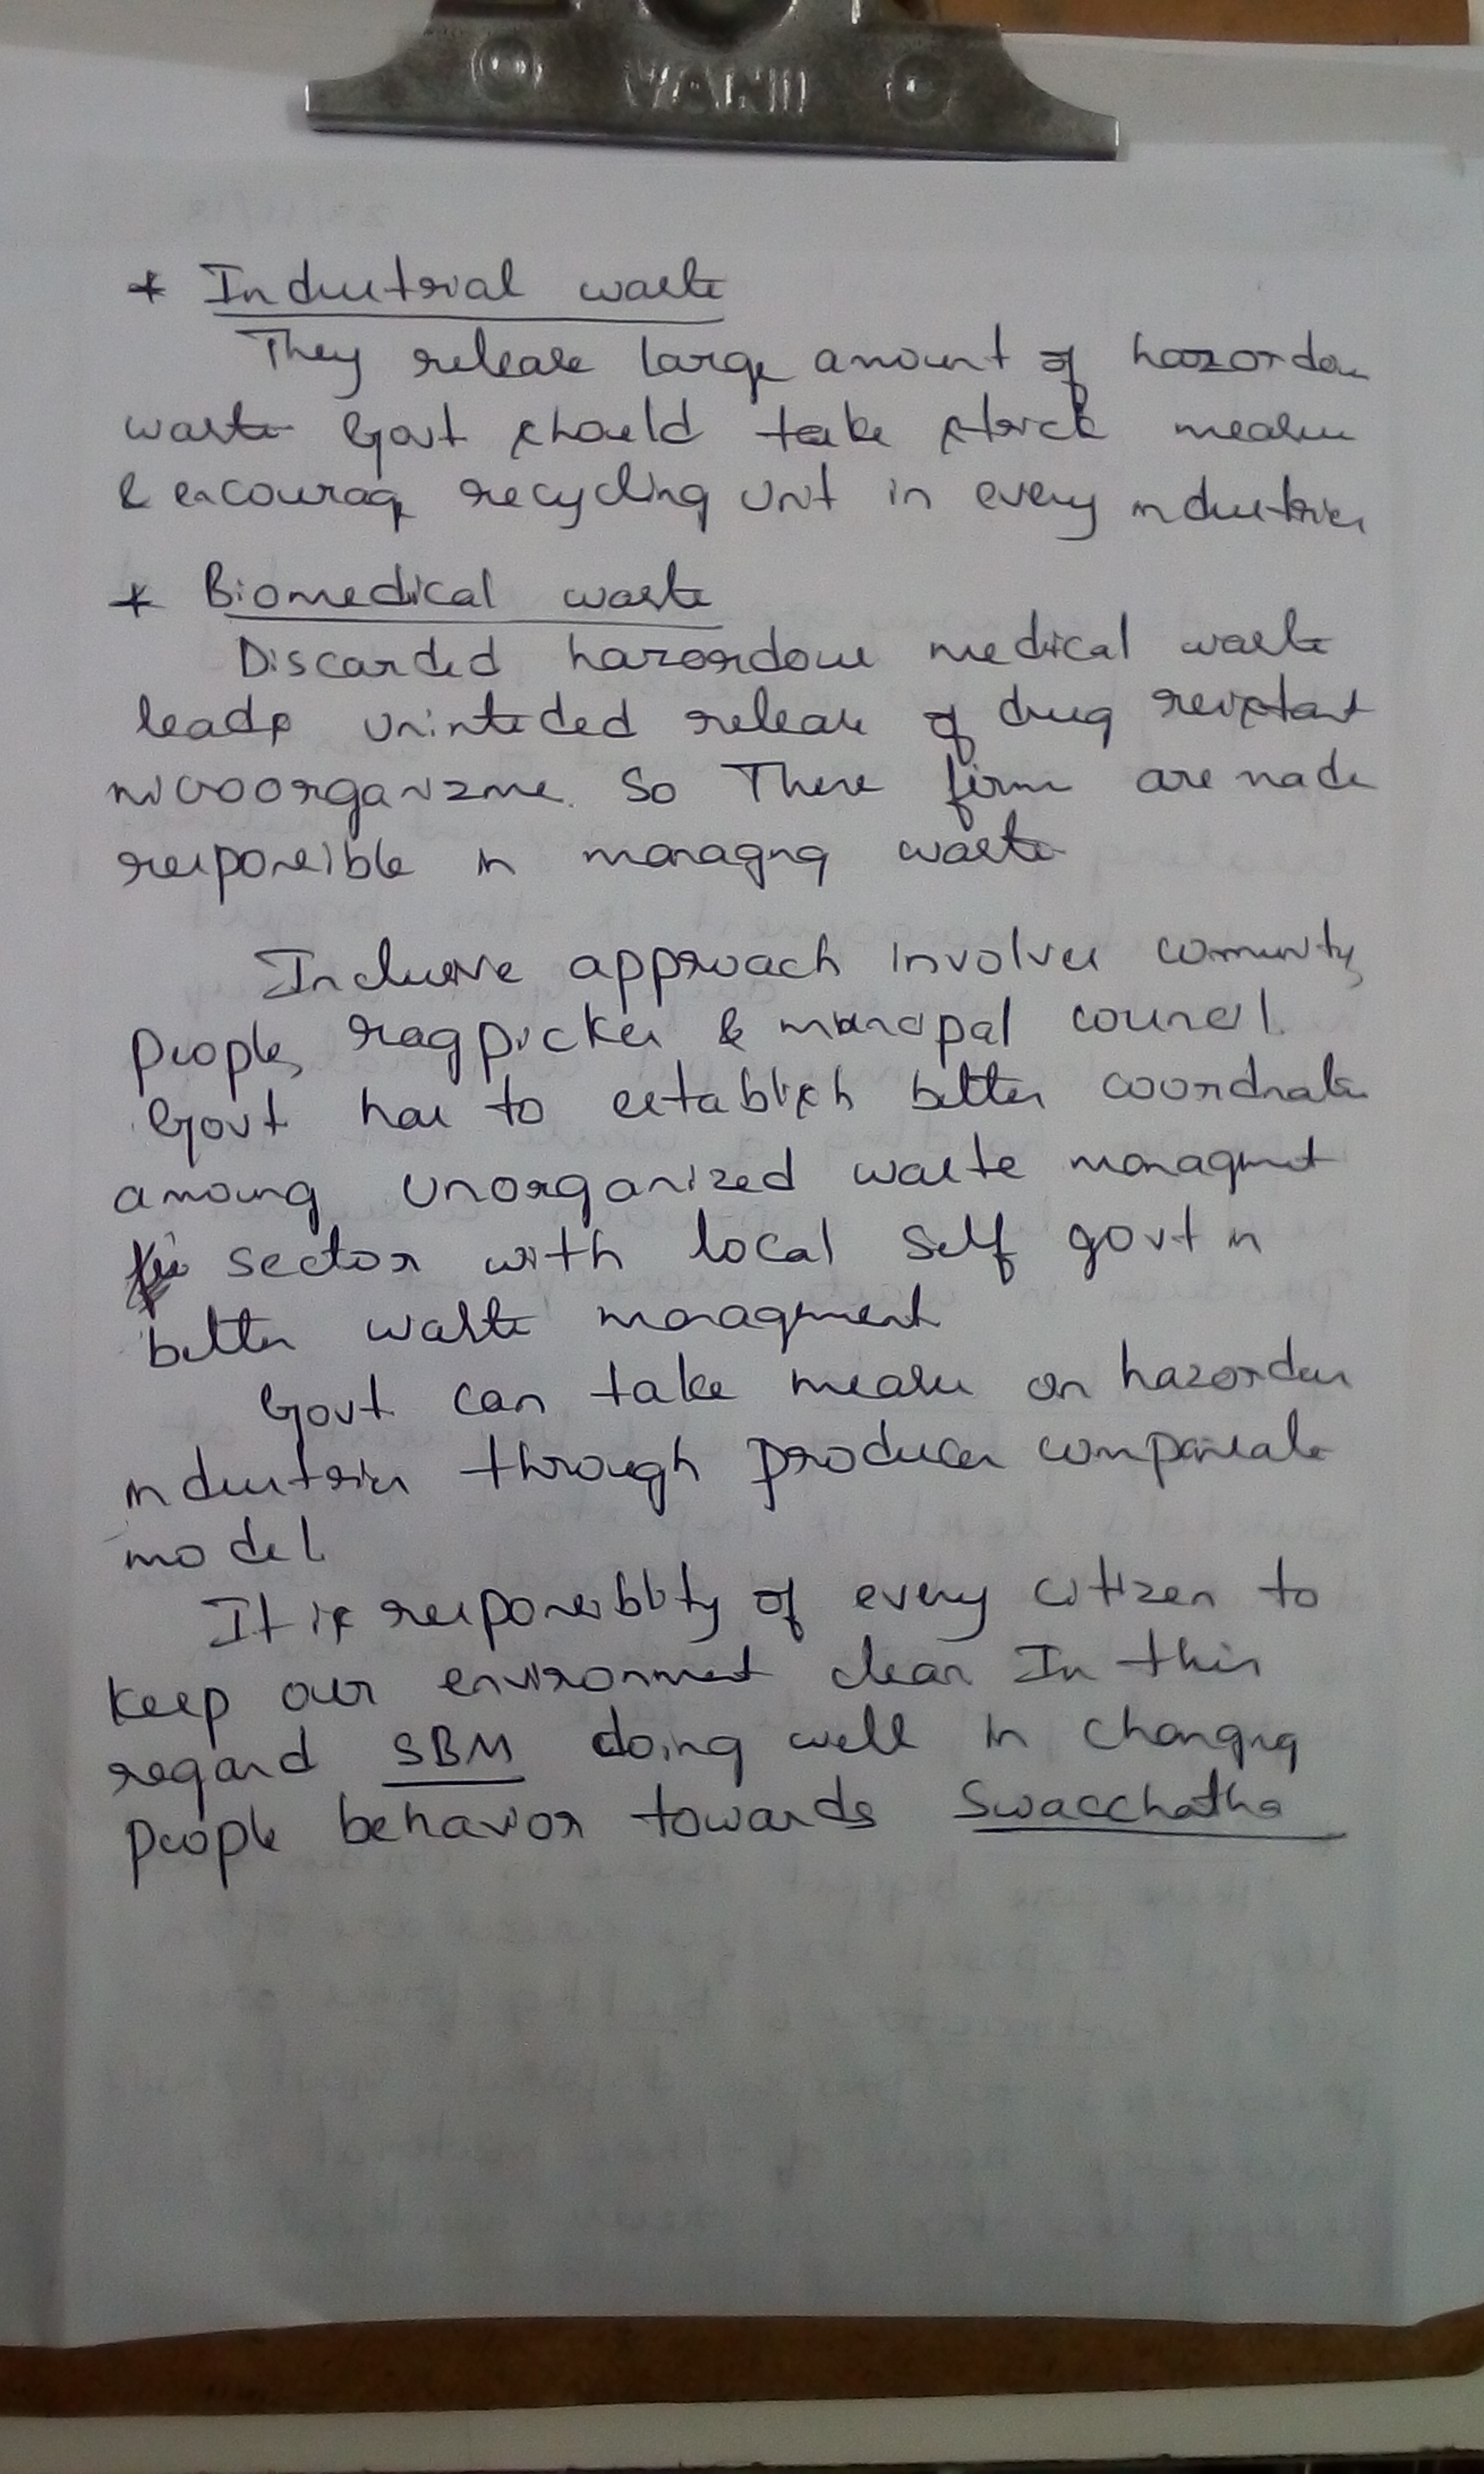 VANI
* Industrial waste
They release large amount of hazordou
waste Govt should take strick measu
& encourag recycling unit in every industries
* Biomedical waste
Discarded hazordous medical waste
leads uninteded release of drug resistant
microorganizms. So These firms are made
responsible in managing waste
Inclusive approach involves comunity
people, ragpicker & muncipal council.
Govt has to establish better coordnate
amoung unorganized waste managmet
sector with local self govt in
better waste managment
Govt can take measu on hazordous
industries through producer compansate
model.
It is responsiblity of every citizen to
keep our environmet clean In this
regard SBM doing well in changing
people behavior towards Swacchatha